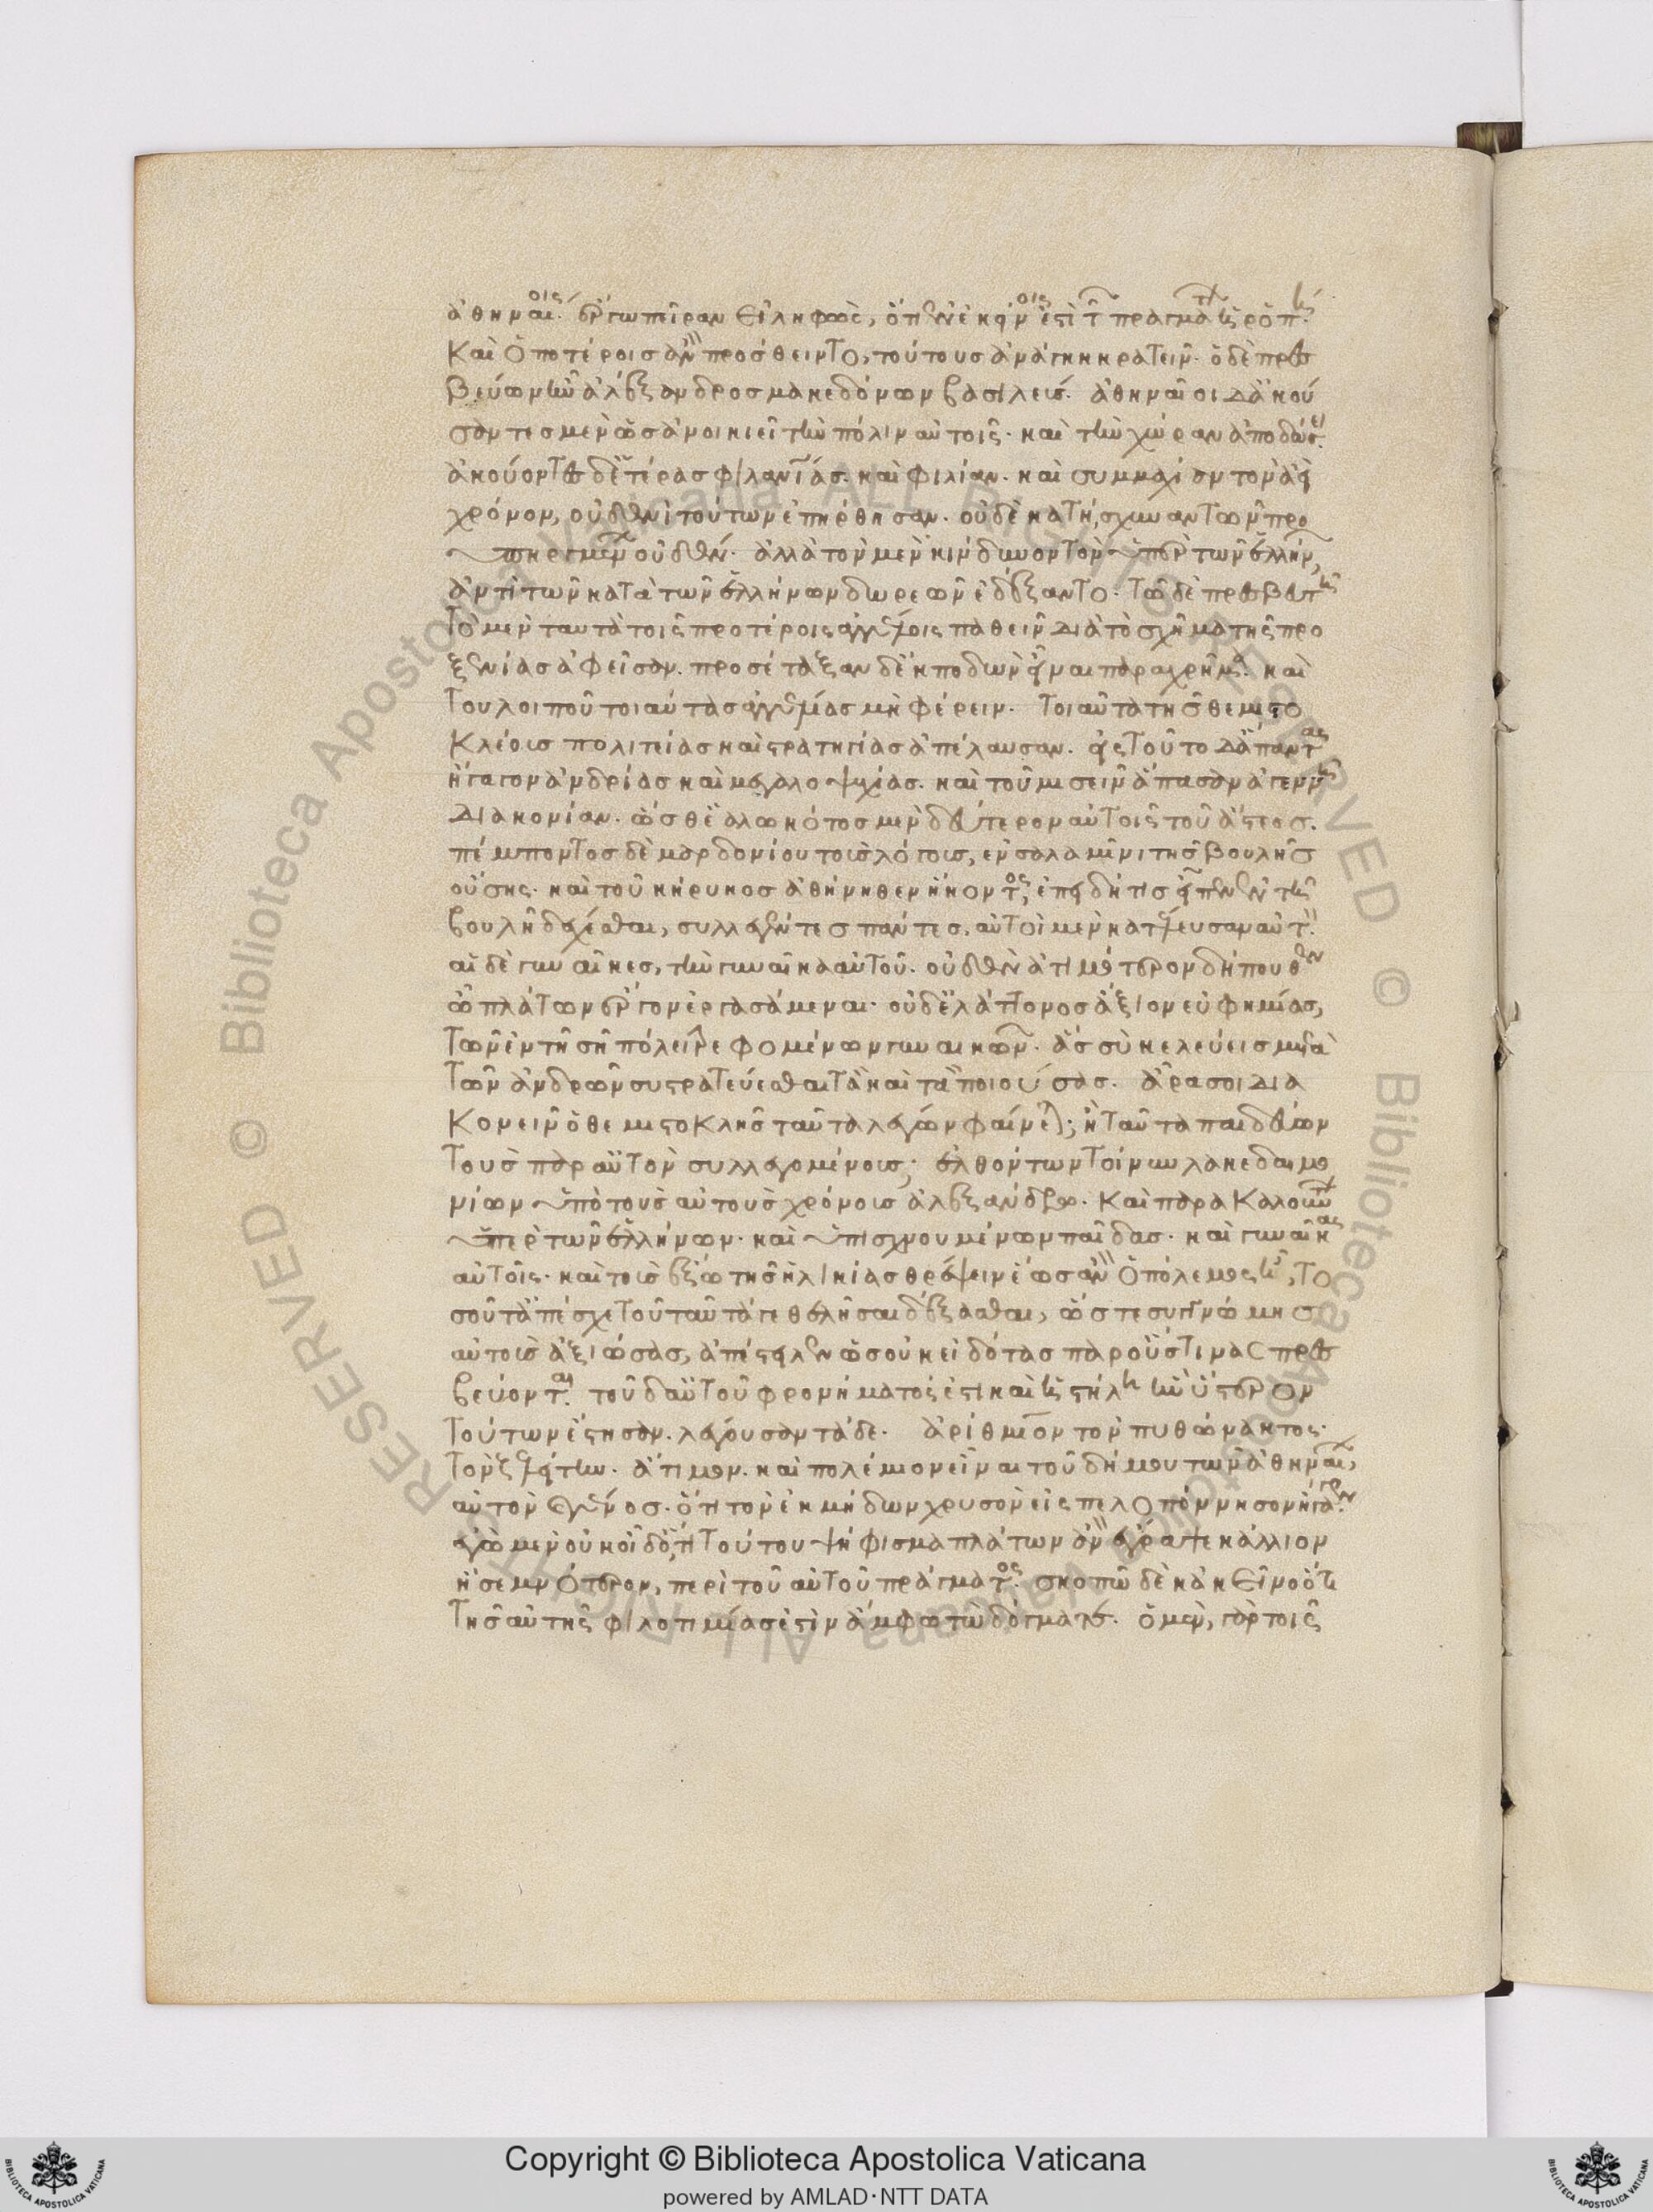 ἀθηναίοις. ἔργω πεῖραν εἰληφὼς, ὅτι ἐν ἐκείνοις ἐστὶ τῶν πραγμάτων ἡ ῥοπή.
Καὶ ὁποτέροις ἂν προσθεῖντο, τούτους ἀνάγκη κρατεῖν. ὁ δὲ πρεσ
βεύων ἦν ἀλέξανδρος μακεδόνων βασιλεύς. ἀθηναῖοι δ' ἀκού
σαντες μὲν ὡς ἀνοικιεῖ τὴν πόλιν αὐτοῖς. καὶ τὴν χώραν ἀποδώσει.
ἀκούοντες δ' ἑτέρας φιλανθρωπίας. καὶ φιλίαν. καὶ συμμαχίαν τὸν ἀεὶ
χρόνον, οὐδενὶ τούτων ἐπήρθησαν. οὐδὲ κατῄσχυναν τῶν προ
ϋπηργμένων οὐδέν. ἀλλὰ τὸν μὲν κίνδυνον τὸν ὑπὲρ τῶν ἑλλήνων,
ἀντὶ τῶν κατὰ τῶν ἑλλήνων δωρεῶν ἐδέξαντο. τῶ δὲ πρεσβευτῆ
τὸ μὲν ταυτὰ τοῖς προτέροις ἀγγέλοις παθεῖν διὰ τὸ σχῆμα τῆς προ
ξενίας ἀφεῖσαν. προσέταξαν δ' ἐκποδὼν εἶναι παραχρῆμα. καὶ
τουλοιποῦ τοιαύτας ἀγγελίας μὴ φέρειν. τοιαῦτα τῆς θεμιστο
κλέους πολιτείας καὶ στρατηγίας ἀπέλαυσαν. εἰς τοῦτο δ' ἅπαντας
ἤγαγον ἀνδρίας καὶ μεγαλοψυχίας. καὶ τοῦ μισεῖν ἅπασαν ἀγεννῆ
διακονίαν. ὥσθ' ἑαλωκότος μὲν δεύτερον αὐτοῖς τοῦ ἄστεος.
πέμποντος δὲ μαρδονίου τοὺς λόγους, ἐν σαλαμῖνι τῆς βουλῆς
οὔσης. καὶ τοῦ κήρυκος ἀθήνηθεν ἥκοντος, ἐπειδή τις εἶπεν ἐν τῆ
βουλῆ δέχεσθαι, συλλεγέντες πάντες, αὐτοὶ μὲν κατέλευσαν αὐτόν.
αἱ δὲ γυναῖκες, τὴν γυναῖκα αὐτοῦ. οὐδὲν ἀτιμότερον δήπουθεν
ὦ πλάτων ἔργον ἐργασάμεναι. οὐδ' ἐλάττονος ἄξιον εὐφημίας,
τῶν ἐν τῆ σῆ πόλει τρεφομένων γυναικῶν. ἃς σὺ κελεύεις μετὰ
τῶν ἀνδρῶν συστρατεύεσθαι τὰ καὶ τὰ ποιούσας. ἆρα σοι δια
κονεῖν ὁ θεμιστοκλῆς ταῦτα λέγων φαίνεται; ἢ ταῦτα παιδεύων
τοὺς παρ' αὑτὸν συλλεγομένους; ἐλθόντων τοίνυν λακεδαιμο
νίων ὑπὸ τοὺς αὐτοὺς χρόνους ἀλεξάνδρω. καὶ παρακαλούντων
ὑπὲρ τῶν ἑλλήνων. καὶ ὑπισχνουμένων παῖδας. καὶ γυναῖκας
αὐτοῖς. καὶ τοὺς ἔξω τῆς ἡλικίας θρέψειν ἕως ἂν ὁ πόλεμος ἦ, το
σοῦτ' ἀπέσχε τοῦ ταῦτά γε θελῆσαι δέξασθαι, ὥστε συγγνώμης
αὐτοὺς ἀξιώσας, ἀπέστειλεν ὡς οὐκ εἰδότας παρ' οὕστινας πρεσ
βεύονται. τοῦ δ' αὐτοῦ φρονήματός ἐστι καὶ ἡ στήλη ἣν ὕστερον
τούτων ἔστησαν. λέγουσαν τάδε. ἀρίθμιον τὸν πυθώνακτος.
τὸν ζελείτην. ἄτιμον. καὶ πολέμιον εἶναι τοῦ δήμου τῶν ἀθηναίων,
αὐτὸν καὶ γένος. ὅτι τὸν ἐκ μήδων χρυσὸν εἰς πελοπόννησον ἤγαγεν.
ἐγὼ μὲν οὐκ οἶδ' ὅ,τι τούτου ψήφισμα πλάτων ἂν ἔγραψε κάλλιον
ἢ σεμνότερον, περὶ τοῦ αὐτοῦ πράγματος. σκοπῶ δὲ κἀκεῖνο ὅτι
τῆς αὐτῆς φιλοτιμίας ἐστὶν ἄμφω τὼ δόγματε. ὁ μὲν, γὰρ τοῖς